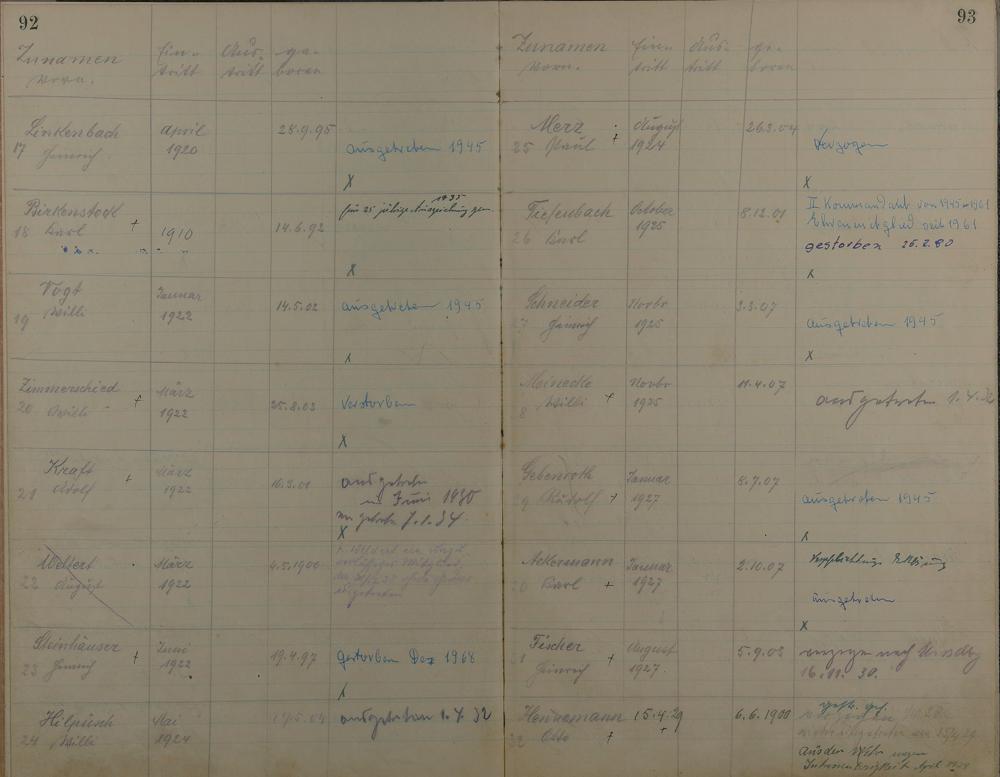 92
Zunamen Ein- Aus- ge-
Vorn. tritt tritt boren
Linkenbach April 28.9.95
17 Heinrich 1920 ausgetreten 1945
X
Birkenstock + 1935
18 Karl 1910 14.6.92 für 25 jährige Auszeichnung
X
Vogt Januar
19 Willi 1922 14.5.02 ausgetreten 1945
X
Zimmerschied + März
20 Willi 1922 25.8.03 Verstorben
X
Kraft + März ausgetreten
21 Adolf 1922 16.3.01 im Juni 1930
7.1.34.
X
Weltert März
22 August 1922 4.5.1900
Steinhäuser + Juni
23 Heinrich 1922 19.4.97 gestorben Dez 1968
X
Hilpüsch Mai
24 Willi 1924 ausgetreten 1.4.32
93
Zunamen Ein- Aus- ge-
Vorn. tritt tritt boren
Merz + August 26.3.04
25 Paul 1924 Verzogen
X
Tiefenbach October 8.12.01 II Kommandant von 1945-1961
26 Karl 1925 Ehrenmitglied seit 1961
gestorben 26.2.80
X
Schneider Novbr 3.3.07
7 Heinrich 1925 ausgetreten 1945
X
Meinecke Novbr 11.4.07
8 Willi + 1925 ausgetreten 1.4.32
Gebenroth Januar 8.7.07
9 Rudolf + 1927 ausgetreten 1945
X
Ackermann Januar 2.10.07 Verpflichtungs Erklärung
30 Karl + 1927 ausgetreten
X
Fischer August 5.9.08 nach
31 Heinrich + 1927. 16.11.30.
Hennemann 15.4.29 6.6.1900
32 Otto +
Aus der Wehr wegen